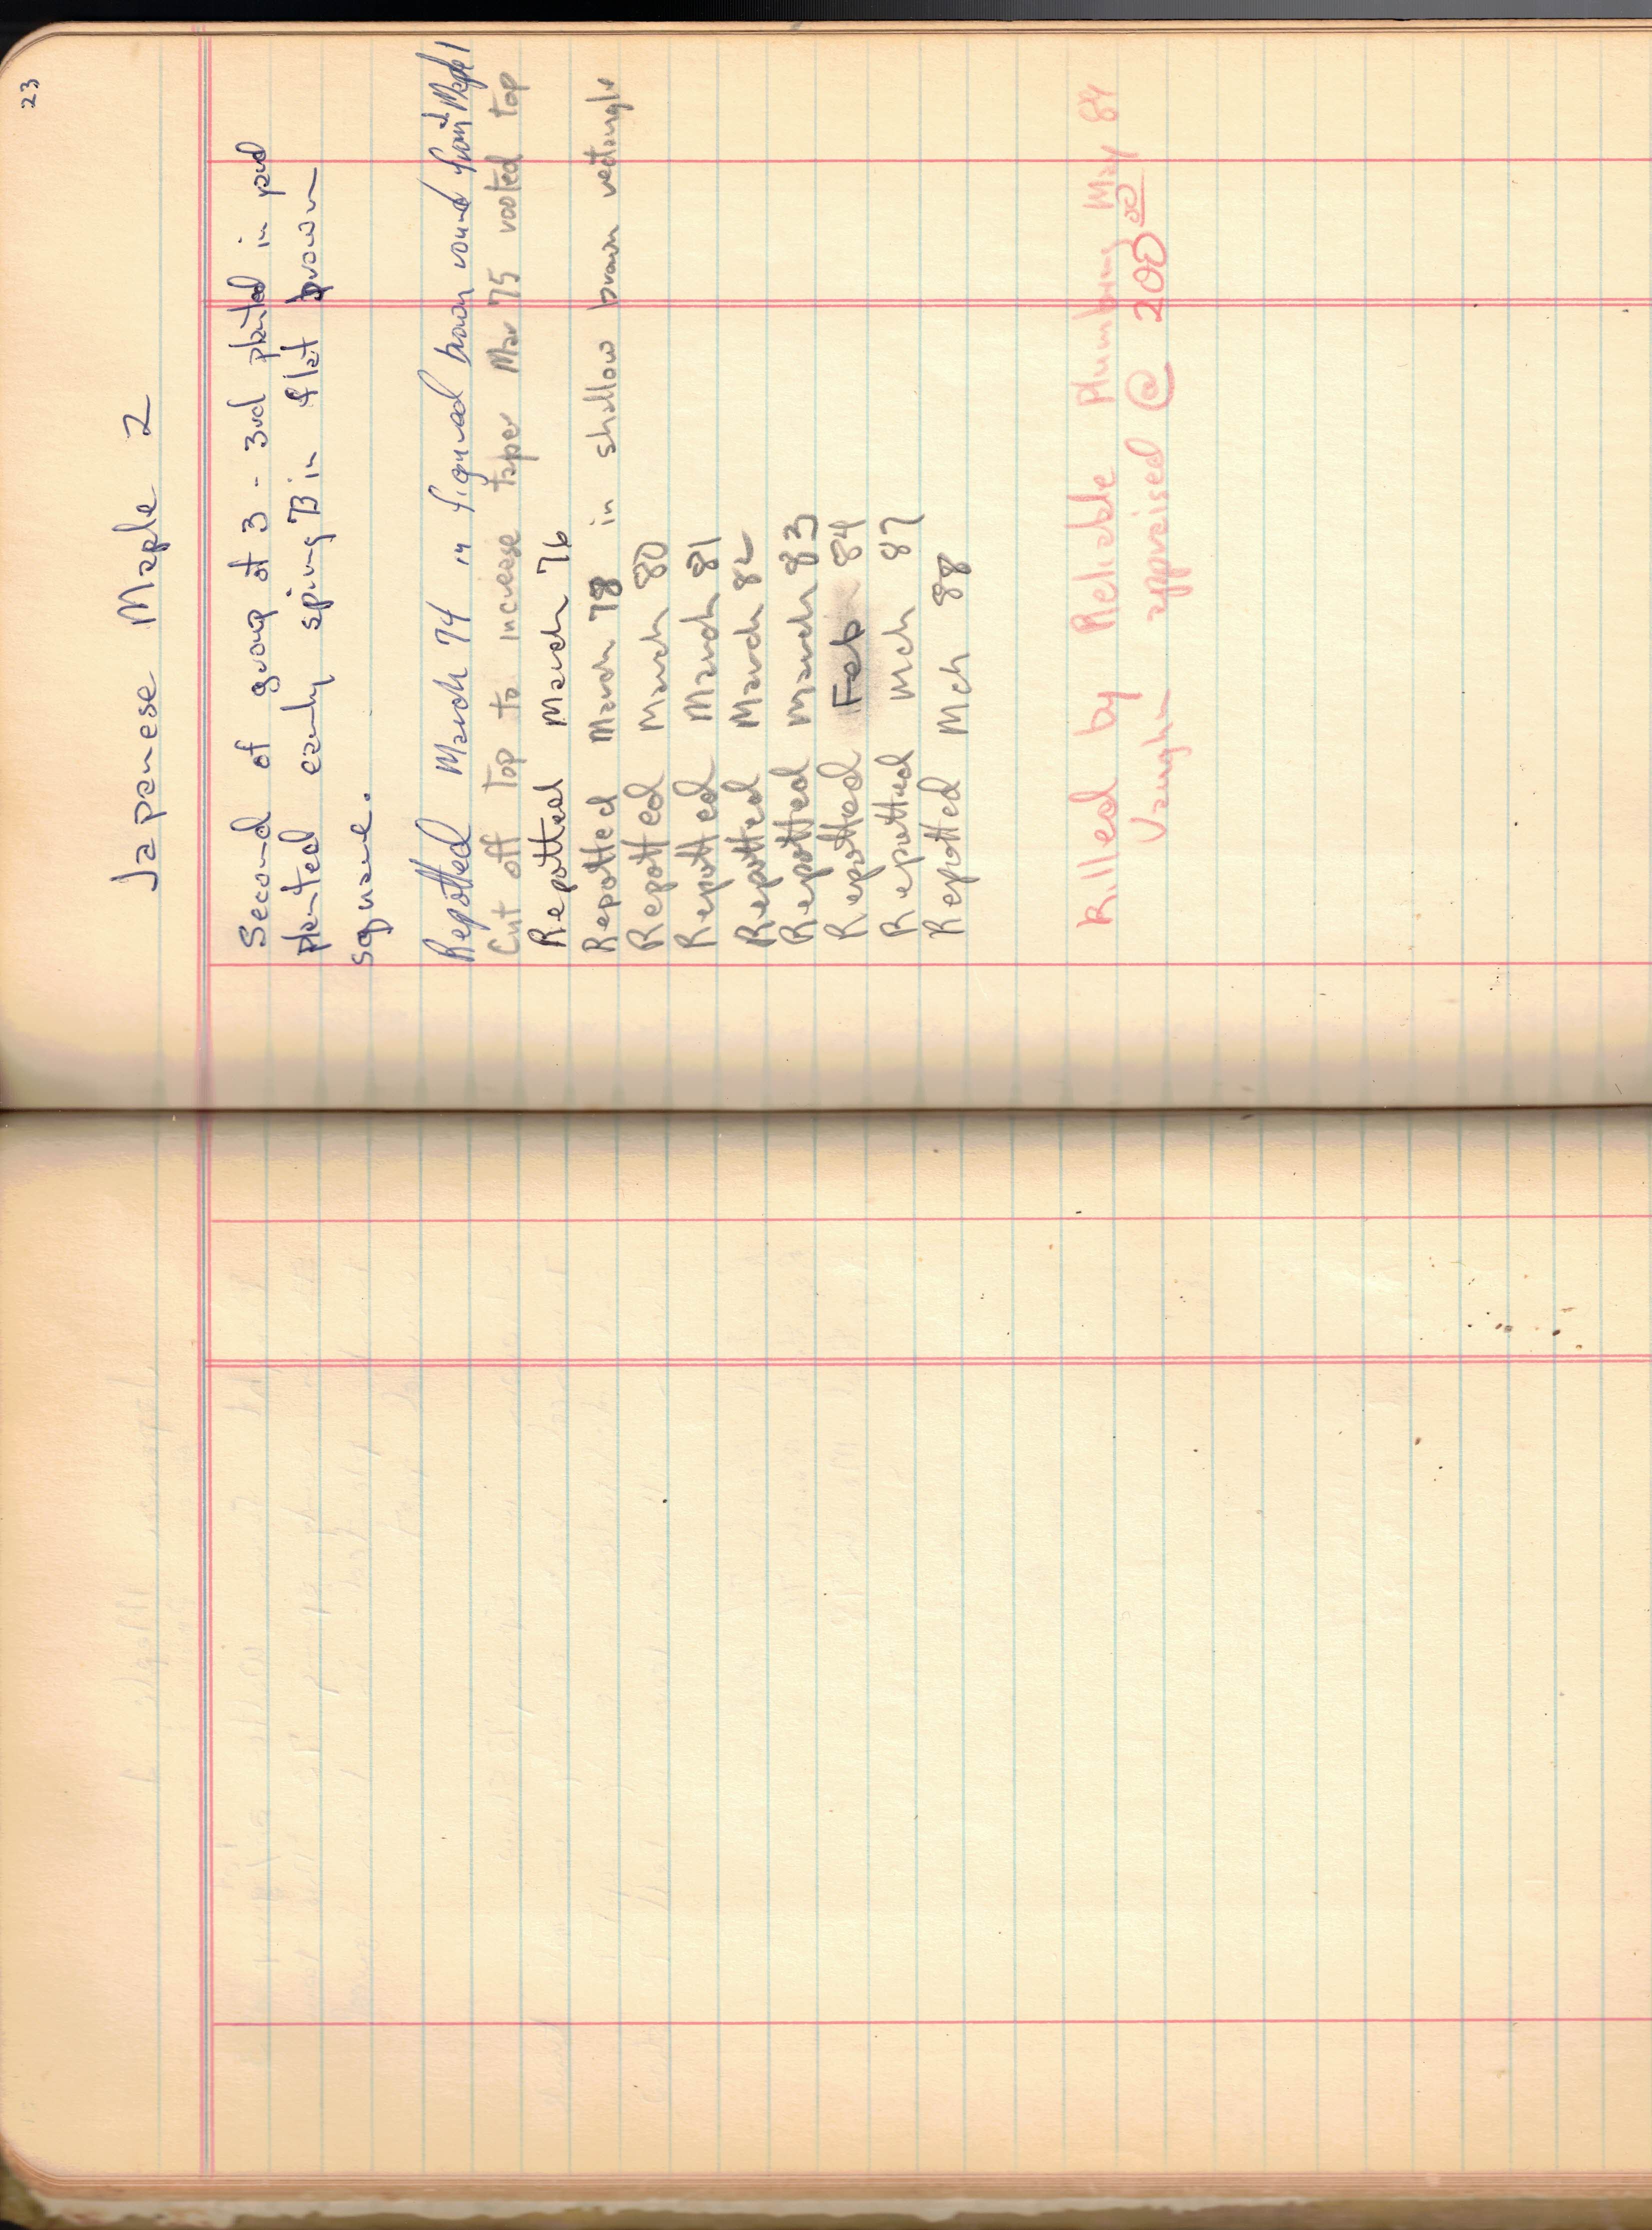 23
Japanese Maple 2
Second of group of 3 - 3rd planted in yard
planted early sping 73 in flat brown
square.
Repotted March 74 in figured brown round from Maple 1
Cut off top to increase taper Mar 75 rooted top
Repotted March 76
Repotted March 78 in shallow brown rectangle
Repotted March 80
Repotted March 81
Repotted March 82
Repotted March 83
Repotted Feb 84
Repotted Mch 87
Repotted Mch 88
Killed by Reliable Plumbing May 89
Vaughn appraised @ 200 00